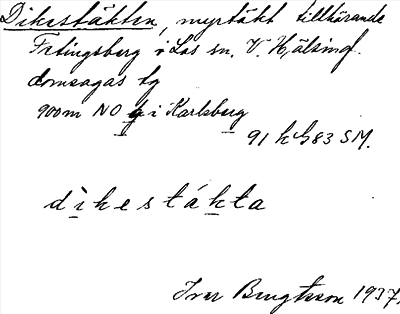 Dikestäkten, myrtäkt tillhörande
Fetingsberg i Los sn. V. Hälsing.
domsagas tg
900m NO g i Karlsberg
91 h 83 SM.
dikestákta
Ivar Bengtsson 1937.